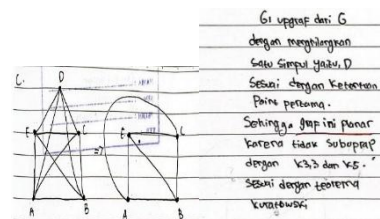 C.
D
E
C
A
B
=>
E
C
A
B
G1 upgraf dari G
dengan menghilangkan
satu simpul yaitu, D
Sesuai dengan Ketentuan
Point pertama.
Sehingga grap ini planar
karena tidak Subgrap
dengan K3,3 dan K5.
Sesuai dengan teorema
Kuratowski